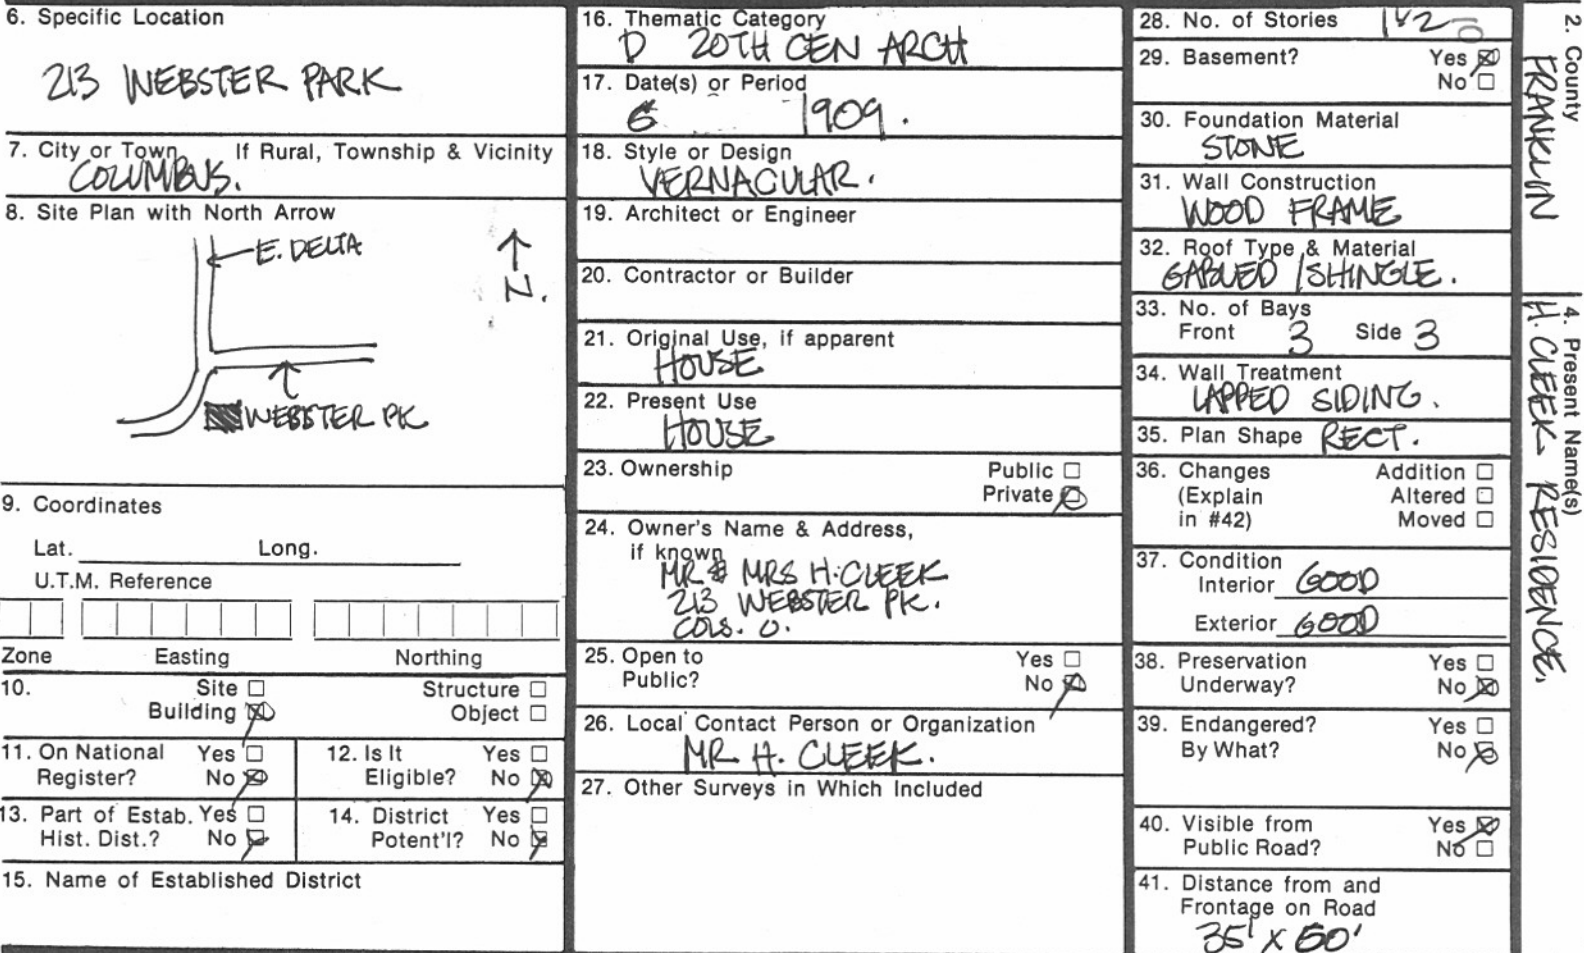 6. Specific Location
213 WEBSTER PARK
7. City or Town If Rural, Township & Vicinity
COLUMBUS.
8. Site Plan with North Arrow
E. DELTA
N.
WEBSTER PK
9. Coordinates
Lat. Long.
U.T.M. Reference
Zone Easting Northing
10. Site ☐ Structure ☐
Building ☒ Object ☐
11. On National Yes ☐ 12. Is It Yes ☐
Register? No ☒ Eligible? No ☒
13. Part of Estab. Yes ☐ 14. District Yes ☐
Hist. Dist.? No ☒ Potent'l? No ☒
15. Name of Established District
16. Thematic Category
D 20TH CEN ARCH
17. Date(s) or Period
1909.
18. Style or Design
VERNACULAR.
19. Architect or Engineer
20. Contractor or Builder
21. Original Use, if apparent
HOUSE
22. Present Use
HOUSE
23. Ownership Public ☐
Private ☒
24. Owner's Name & Address,
if known
MR & MRS H. CLEEK
213 WEBSTER PK.
COLS. O.
25. Open to Yes ☐
Public? No ☒
26. Local Contact Person or Organization
MR. H. CLEEK.
27. Other Surveys in Which Included
28. No. of Stories
29. Basement? Yes ☒
No ☐
30. Foundation Material
STONE
31. Wall Construction
WOOD FRAME
32. Roof Type & Material
GABLED / SHINGLE.
33. No. of Bays
Front 3 Side 3
34. Wall Treatment
LAPPED SIDING.
35. Plan Shape RECT.
36. Changes Addition ☐
(Explain Altered ☐
in #42) Moved ☐
37. Condition
Interior GOOD
Exterior GOOD
38. Preservation Yes ☐
Underway? No ☒
39. Endangered? Yes ☐
By What? No ☒
40. Visible from Yes ☒
Public Road? No ☐
41. Distance from and
Frontage on Road
35' X 60'
2. County
FRANKLIN
4. Present Name(s)
H. CLEEK RESIDENCE.